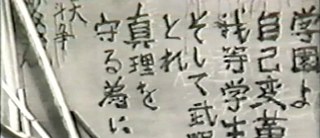 学園よ
自己変革
我等学生
そして武
とれ
真理を
守る為に
大
斗争